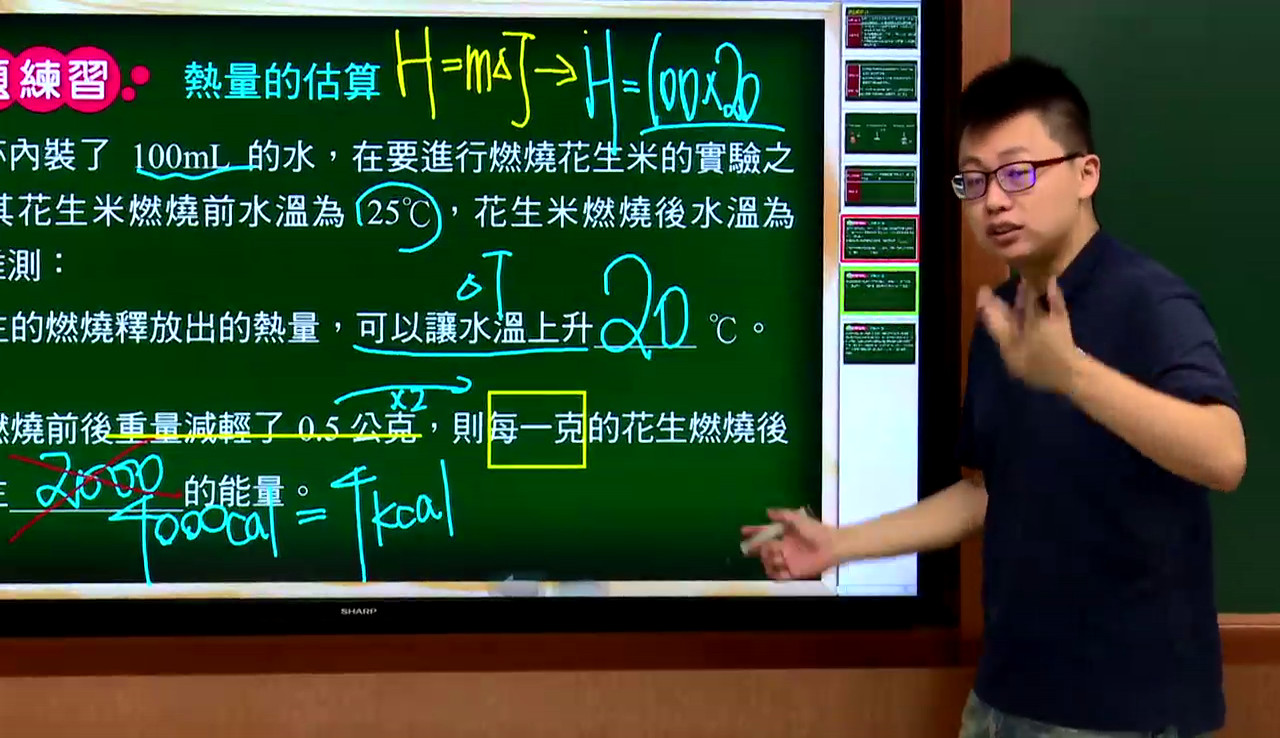 練習： 熱量的估算 H=m△T→H=100×20
內裝了 100mL 的水，在要進行燃燒花生米的實驗之
其花生米燃燒前水溫為 25℃，花生米燃燒後水溫為
測：
△T
的燃燒釋放出的熱量，可以讓水溫上升 20 ℃。
×2
燃燒前後重量減輕了 0.5 公克，則每一克的花生燃燒後
2000 的能量。
4000cal = 4kcal
SHARP